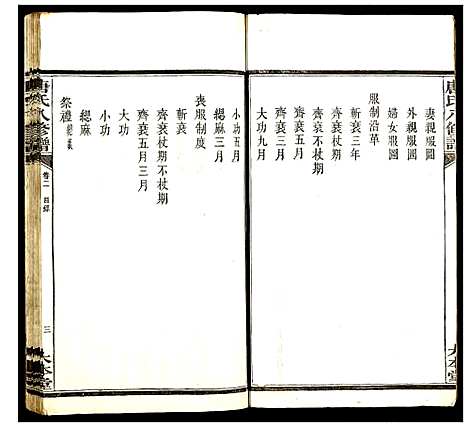 唐氏八修譜
妻親服圖
外親服圖
婦女服圖
服制沿革
斬衰三年
齊衰杖期
齊衰不杖期
齊衰三月
大功九月
大本堂
小功五月
緦麻三月
喪服制度
斬衰
齊衰杖期不杖期
齊衰五月三月
大功
小功
緦麻
祭禮
唐氏八修譜
卷二
目錄
三
大本堂